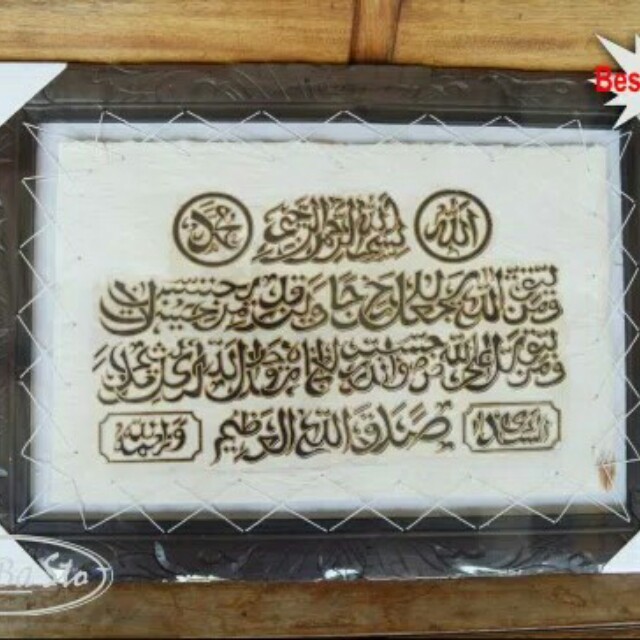 الله بسم الله الرحمن الرحيم محمد
ومن يتق الله يجعل له مخرجا ويرزقه من حيث لا يحتسب
ومن يتوكل على الله فهو حسبه إن الله بالغ أمره قد جعل الله لكل شيء قدرا
صدق الله العظيم
Bes